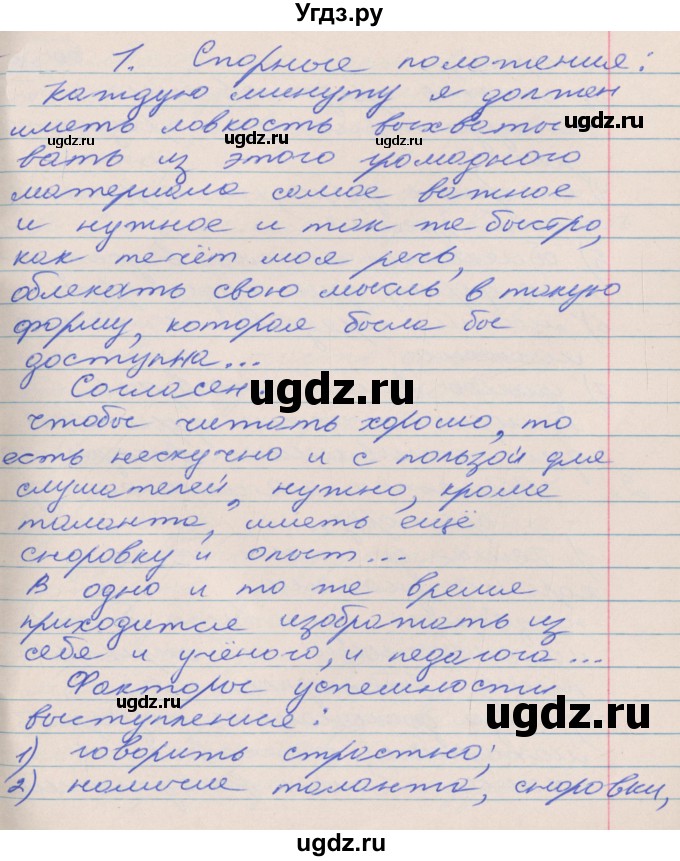 Угдз.ру
1. Спорные положения:
Каждую минуту я должен
иметь ловкость выхваты
ugdz.ru ugdz.ru ugdz.ru
вать из этого громадного
материала самое важное
и нужное и так же быстро,
ugdz.ru ugdz.ru
как течёт моя речь,
облекать свою мысль в такую
форму, которая была бы
доступна...
Согласен:
ugdz.ru
чтобы читать хорошо, то
есть нескучно и с пользой для
слушателей, нужно, кроме
ugdz.ru
таланта, иметь ещё
сноровку и опыт...
ugdz.ru
В одно и то же время
приходится изображать из
себя и учёного, и педагога...
Факторы успешности
ugdz.ru
выступления:
1) говорить страстно;
ugdz.ru
2) наличие таланта, сноровки,
ugdz.ru